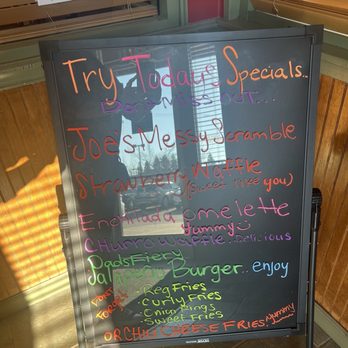 Try Todays Specials..
Don't Miss OUT...
Joe's Messy Scramble
Strawberry Waffle
(Sweet like you)
Enchilada omelette
yummy
Churro Waffle..Delicious
Dads Fiery
Burger.. enjoy
Reg Fries
Curly Fries
Onion Rings
Sweet Fries
OR CHILI CHEESE FRIES. yummy